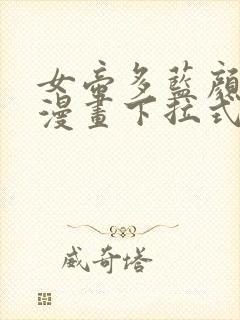 女帝多藍顏
漫畫下拉式
威奇塔